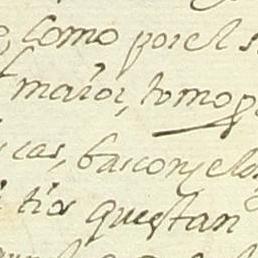 como por el s
maior, tomo p
cas, basconselo
tios questan